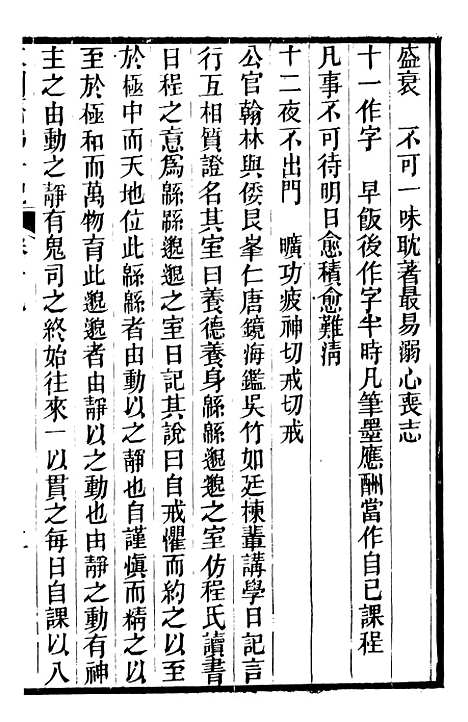 盛衰　不可一味耽著最易溺心喪志
十一作字　早飯後作字半時凡筆墨應酬當作自已課程
凡事不可待明日愈積愈難淸
十二夜不出門　曠功疲神切戒切戒
公官翰林與倭艮峯仁唐鏡海鑑吳竹如廷棟輩講學日記言
行互相質證名其室曰養德養身緜緜邈邈之室仿程氏讀書
日程之意爲緜緜邈邈之室日記其說曰自戒懼而約之以至
於極中而天地位此緜緜者由動以之靜也自謹愼而精之以
至於極和而萬物育此邈邈者由靜以之動也由靜之動有神
主之由動之靜有鬼司之終始往來一以貫之每日自課以八